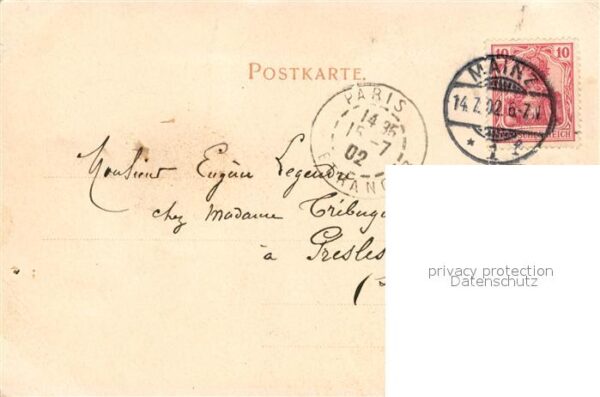 POSTKARTE.
10 10
MAINZ
14.7.02 6-7
* 1
PARIS
14 35
15 -7
02
ETRANGER
Monsieur Eugène Legendre
chez Madame
à Presles
privacy protection
Datenschutz